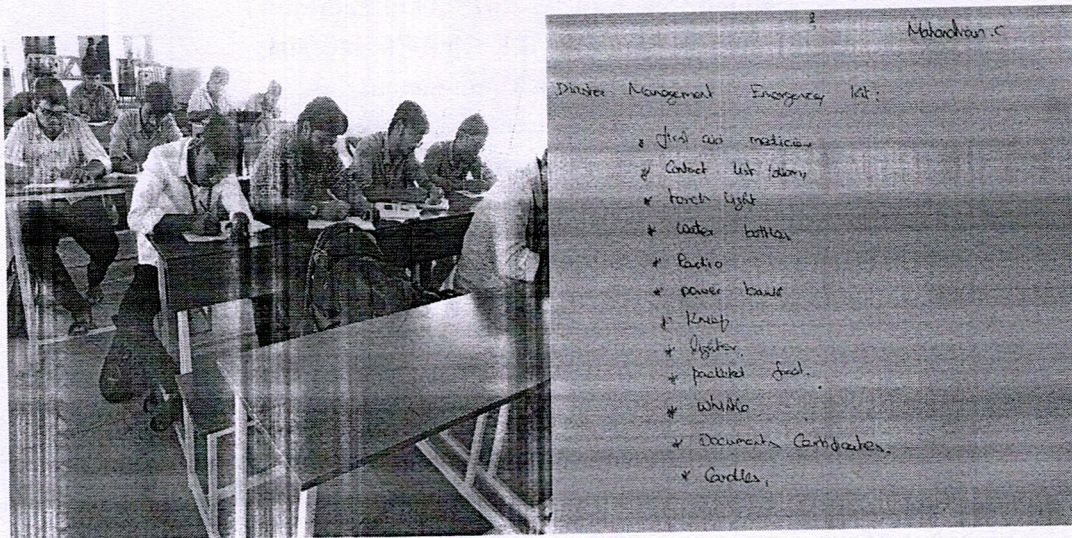 Mahardhan.C
Disaster Management Emergency kit:
* first aid medicine
* Contact list
* torch light
* water bottles
* Radio
* power bank
* Knief
* lighter.
* packted food.
* Whistle
* Documents Certificates.
* Candles,